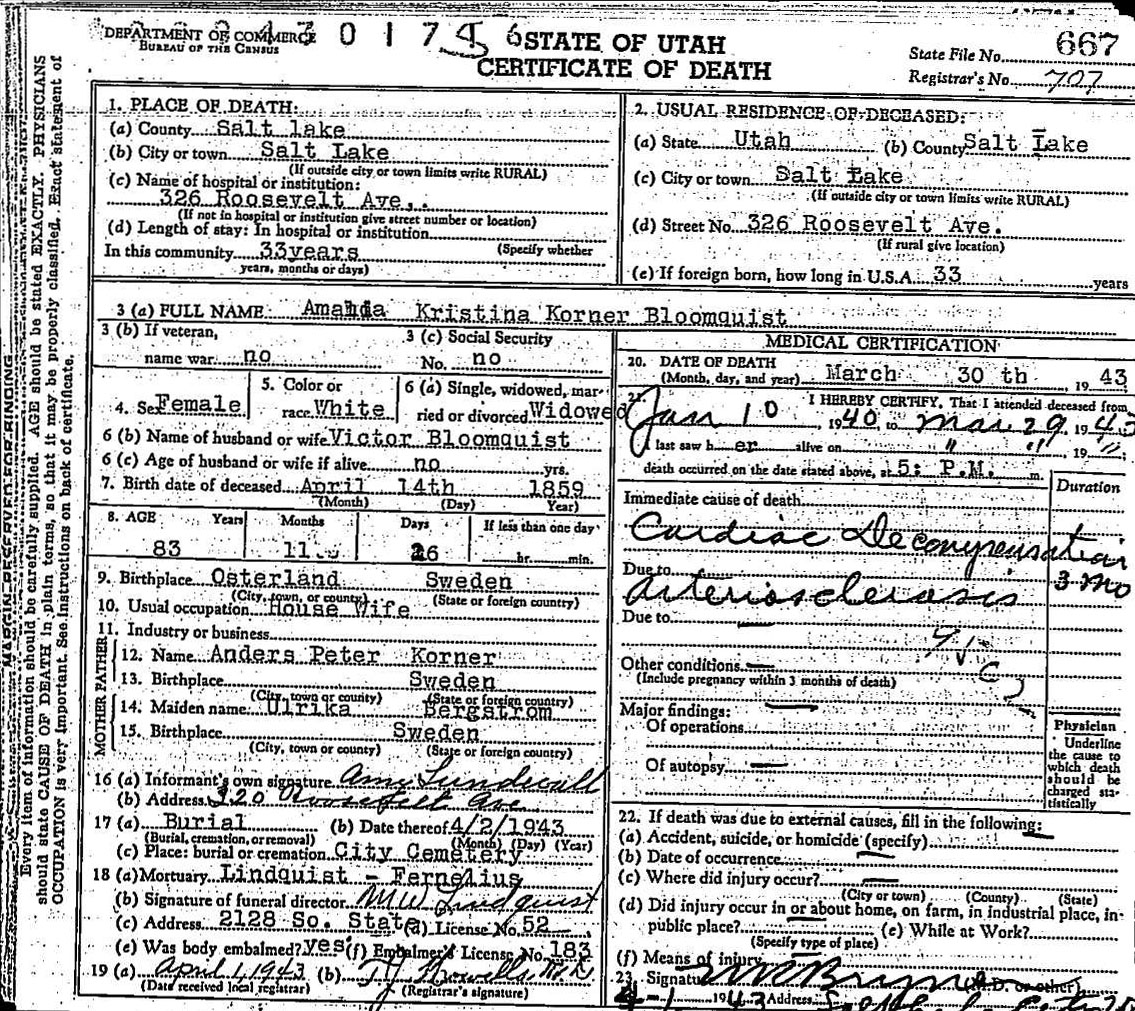 DEPARTMENT OF COMMERCE
BUREAU OF THE CENSUS
STATE OF UTAH
CERTIFICATE OF DEATH
State File No. 667
Registrar's No. 707
MARGIN RESERVED FOR BINDING
Every item of information should be carefully supplied. AGE should be stated EXACTLY. PHYSICIANS
should state CAUSE OF DEATH in plain terms, so that it may be properly classified. Exact statement of
OCCUPATION is very important. See instructions on back of certificate.
1. PLACE OF DEATH:
(a) County Salt lake
(b) City or town Salt Lake
(If outside city or town limits write RURAL)
(c) Name of hospital or institution:
326 Roosevelt Ave,.
(If not in hospital or institution give street number or location)
(d) Length of stay: In hospital or institution
(Specify whether
In this community 33years
years, months or days)
2. USUAL RESIDENCE OF DECEASED:
(a) State Utah (b) County Salt Lake
(c) City or town Salt Lake
(If outside city or town limits write RURAL)
(d) Street No. 326 Roosevelt Ave.
(If rural give location)
(e) If foreign born, how long in U.S.A. 33 years
3 (a) FULL NAME Amanda Kristina Korner Bloomquist
3 (b) If veteran,
name war no
3 (c) Social Security
No. no
4. Sex Female
5. Color or
race White
6 (a) Single, widowed, mar-
ried or divorced Widowed
6 (b) Name of husband or wife Victor Bloomquist
6 (c) Age of husband or wife if alive no yrs.
7. Birth date of deceased April 14th 1859
(Month) (Day) Year)
8. AGE Years Months Days If less than one day
83 11 16 hr. min.
9. Birthplace Osterland Sweden
(City, town, or county) (State or foreign country)
10. Usual occupation House Wife
11. Industry or business
FATHER
12. Name Anders Peter Korner
13. Birthplace Sweden
(City, town or county) (State or foreign country)
MOTHER
14. Maiden name Ulrika Bergstrom
15. Birthplace Sweden
(City, town or county) (State or foreign country)
16 (a) Informant's own signature Amy Lundwall
(b) Address 320 Roosevelt Ave
17 (a) Burial (b) Date thereof 4/2/1943
(Burial, cremation, or removal) (Month) (Day) (Year)
(c) Place: burial or cremation City Cemetery
18 (a) Mortuary Lindquist - Fernelius
(b) Signature of funeral director M W Lindquist
(c) Address 2128 So. State (d) License No. 52
(e) Was body embalmed? yes (f) Embalmer's License No. 183
19 (a) April 1, 1943 (b)
(Date received local registrar) (Registrar's signature)
MEDICAL CERTIFICATION
20. DATE OF DEATH
(Month, day, and year) March 30 th 1943
21. I HEREBY CERTIFY, That I attended deceased from
Jan 10 1940 to Mar 29, 1943
I last saw her alive on " " 19 "
death occurred on the date stated above, at 5: P.M. m.
Duration
Immediate cause of death
Cardiac Decompensation
3 mo
Due to
Arteriosclerosis
Due to
Other conditions
(Include pregnancy within 3 months of death)
Major findings:
Of operations
Of autopsy
Physician
Underline
the cause to
which death
should be
charged sta-
tistically
22. If death was due to external causes, fill in the following:
(a) Accident, suicide, or homicide (specify)
(b) Date of occurrence
(c) Where did injury occur?
(City or town) (County) (State)
(d) Did injury occur in or about home, on farm, in industrial place, in
public place? (e) While at Work?
(Specify type of place)
(f) Means of injury
23. Signature (M.D. or other)
4-1 1943 Address